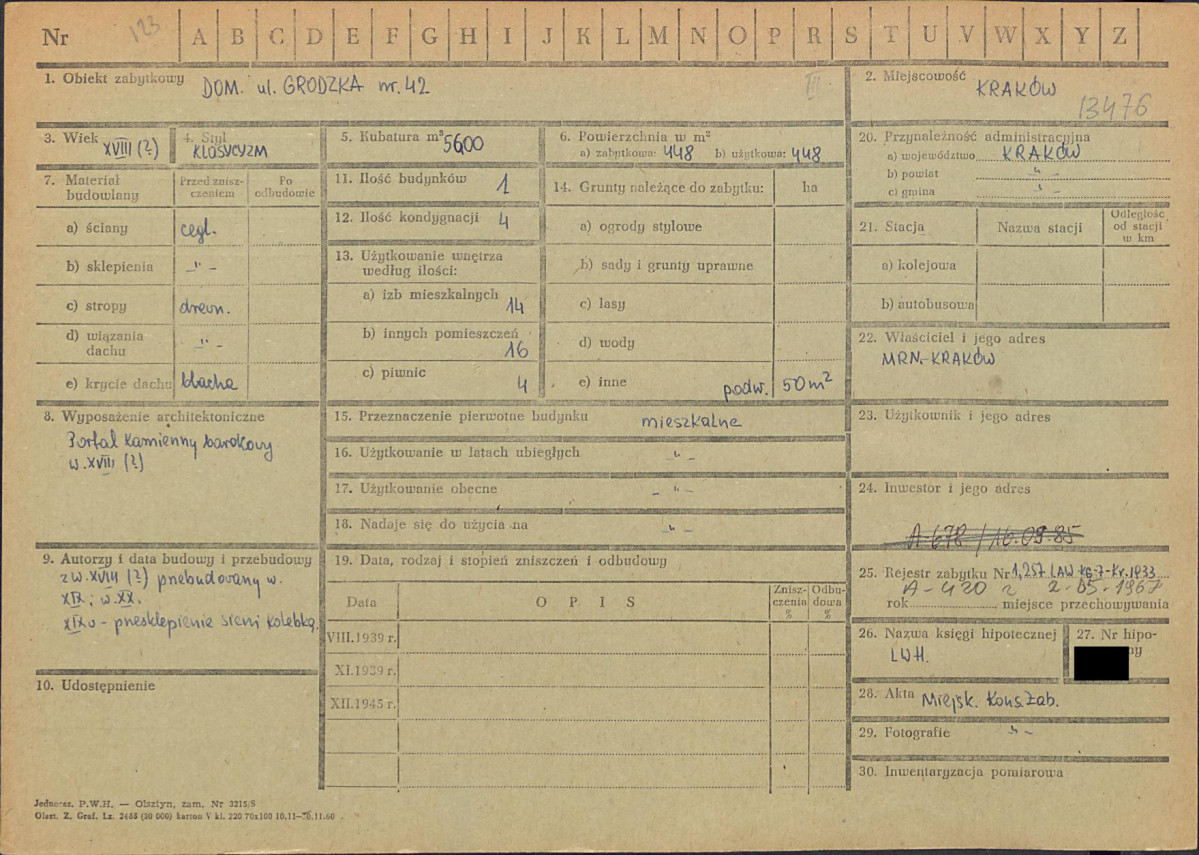 Nr 123 A B C D E F G H I J K L M N O P R S T U V W X Y Z
1. Obiekt zabytkowy DOM. ul. GRODZKA nr. 42 III
2. Miejscowość KRAKÓW
13476
3. Wiek XVIII (?)
4. Styl KLASYCYZM
5. Kubatura m³ 5600
6. Powierzchnia w m²
a) zabytkowa: 448 b) użytkowa: 448
7. Materiał budowlany
Przed znisz-
czeniem
Po
odbudowie
a) ściany cegl.
b) sklepienia -"-
c) stropy drewn.
d) wiązania
dachu -"-
e) krycie dachu blacha
8. Wyposażenie architektoniczne
Portal kamienny barokowy
w. XVIII (?)
9. Autorzy i data budowy i przebudowy
z w. XVIII (?) przebudowany w.
XIX; w. XX.
XIX w - przesklepienie sieni kolebką.
10. Udostępnienie
11. Ilość budynków 1
12. Ilość kondygnacji 4
13. Użytkowanie wnętrza
według ilości:
a) izb mieszkalnych
14
b) innych pomieszczeń
16
c) piwnic
4
14. Grunty należące do zabytku: ha
a) ogrody stylowe
b) sady i grunty uprawne
c) lasy
d) wody
e) inne podw. 50 m²
15. Przeznaczenie pierwotne budynku mieszkalne
16. Użytkowanie w latach ubiegłych -"-
17. Użytkowanie obecne -"-
18. Nadaje się do użycia na -"-
19. Data, rodzaj i stopień zniszczeń i odbudowy
Data O P I S
Znisz-
czenia
%
Odbu-
dowa
%
VIII.1939 r.
XI.1939 r.
XII.1945 r.
20. Przynależność administracyjna
a) województwo KRAKÓW
b) powiat -"-
c) gmina -"-
21. Stacja Nazwa stacji
Odległość
od stacji
w km
a) kolejowa
b) autobusowa
22. Właściciel i jego adres
MRN.-KRAKÓW
23. Użytkownik i jego adres
24. Inwestor i jego adres
A-678/16.09.85
25. Rejestr zabytku Nr 1,257 LAW KG-7-Kr.1933
A-420 z 2-05-1967
rok miejsce przechowywania
26. Nazwa księgi hipotecznej
LWH.
27. Nr hipo-
28. Akta Miejsk. Kons. Zab.
29. Fotografie -"-
30. Inwentaryzacja pomiarowa
Jednorаz. P.W.H. — Olsztyn, zam. Nr 3215/S
Olszt. Z. Graf. Lz. 2455 (30 000) karton V kl. 220 70x100 10.11—30.11.60